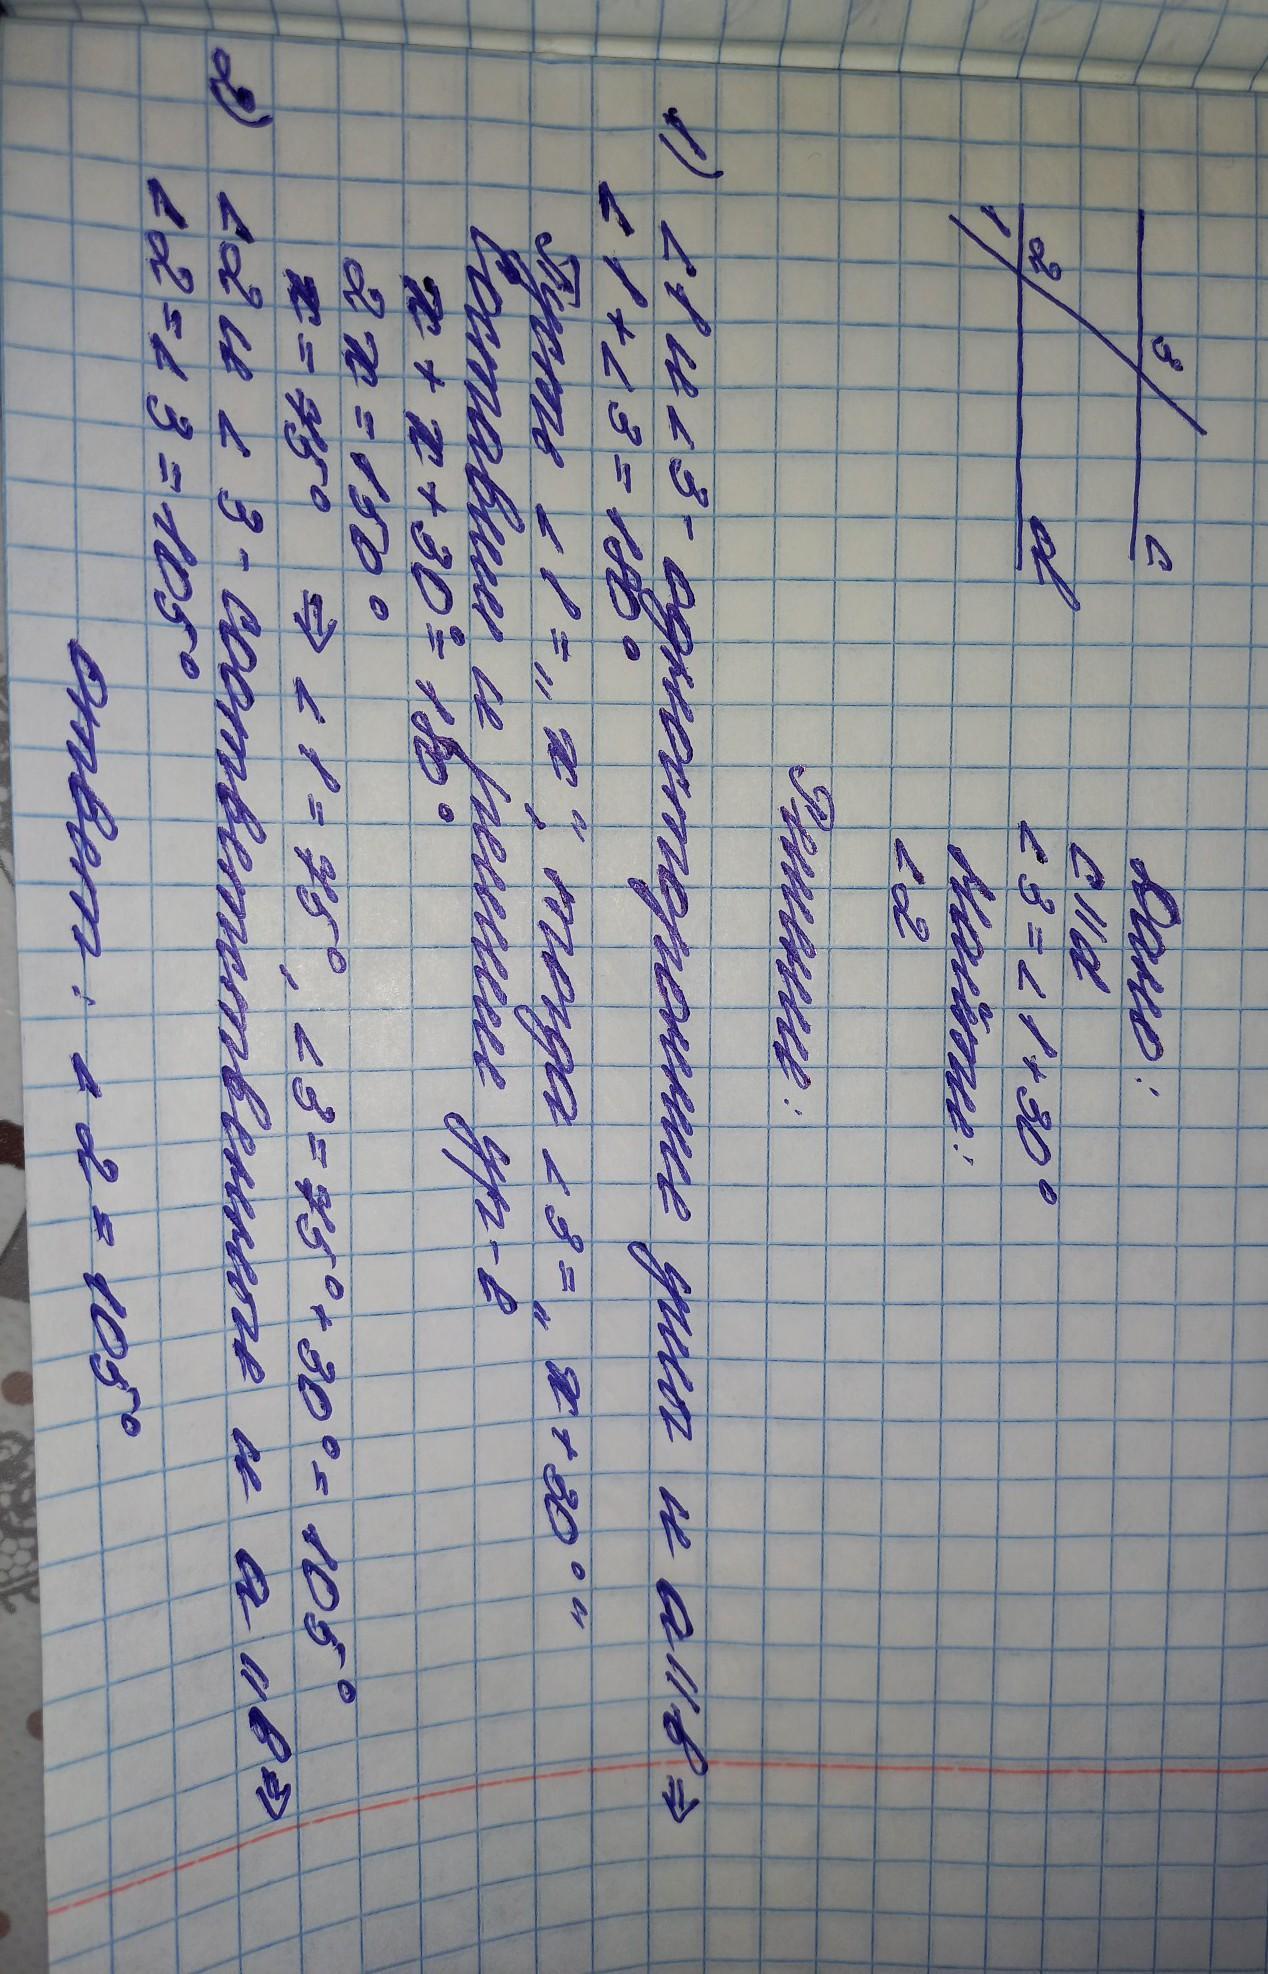 3
c
2
1
d
Дано:
c||d
<3=<1+30°
Найти:
<2
Решение:
1) <1 и <3- односторонние углы и a||в⇒
<1+<3=180°
Пусть <1=„x“, тогда <3=„x+30°“
Составим и решим ур-е
x+x+30°=180°
2x=150°
x=75° ⇒ <1=75°, <3=75°+30°=105°
2) <2 и <3-соответственные и a||в⇒
<2=<3=105°
Ответ: <2=105°